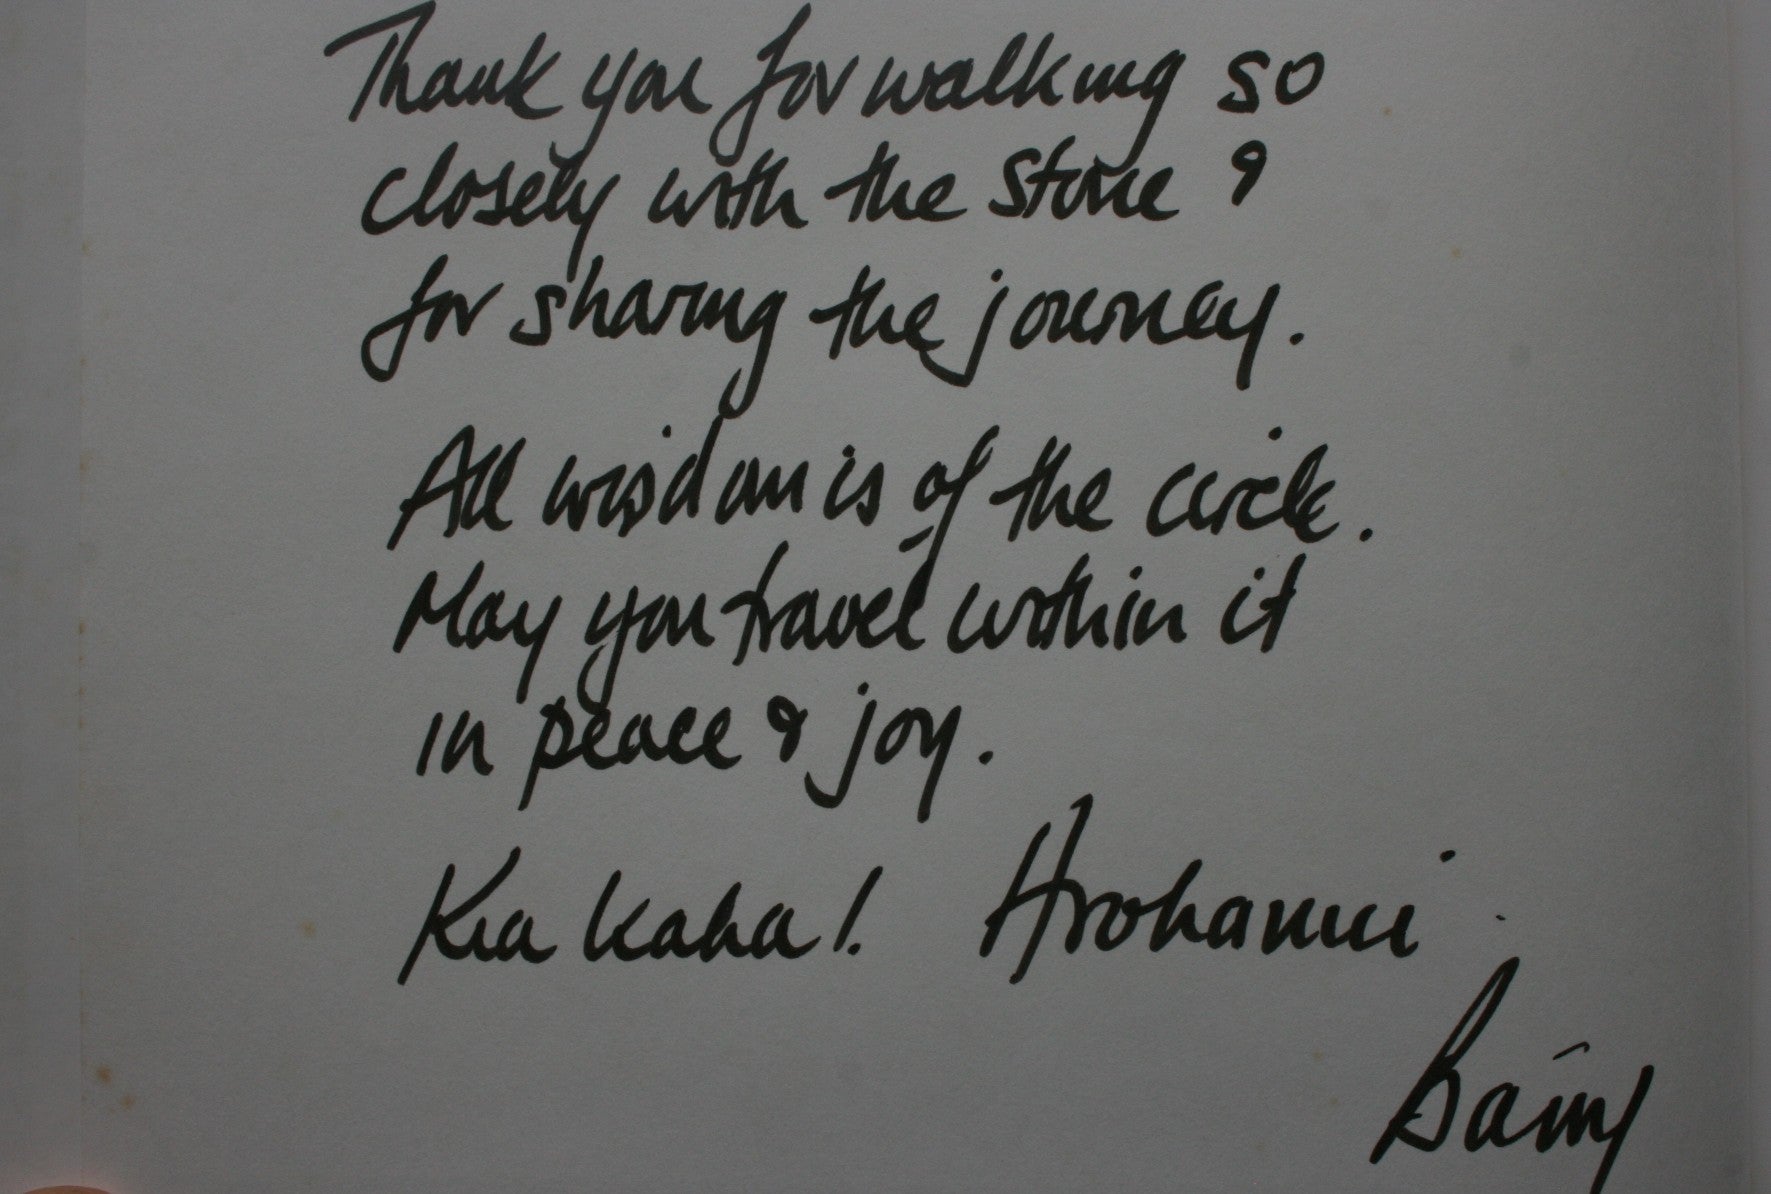 Thank you for walking so
closely with the stone &
for sharing the journey.
All wisdom is of the circle.
May you travel within it
in peace & joy.
Kia kaha! Arohanui
Barry